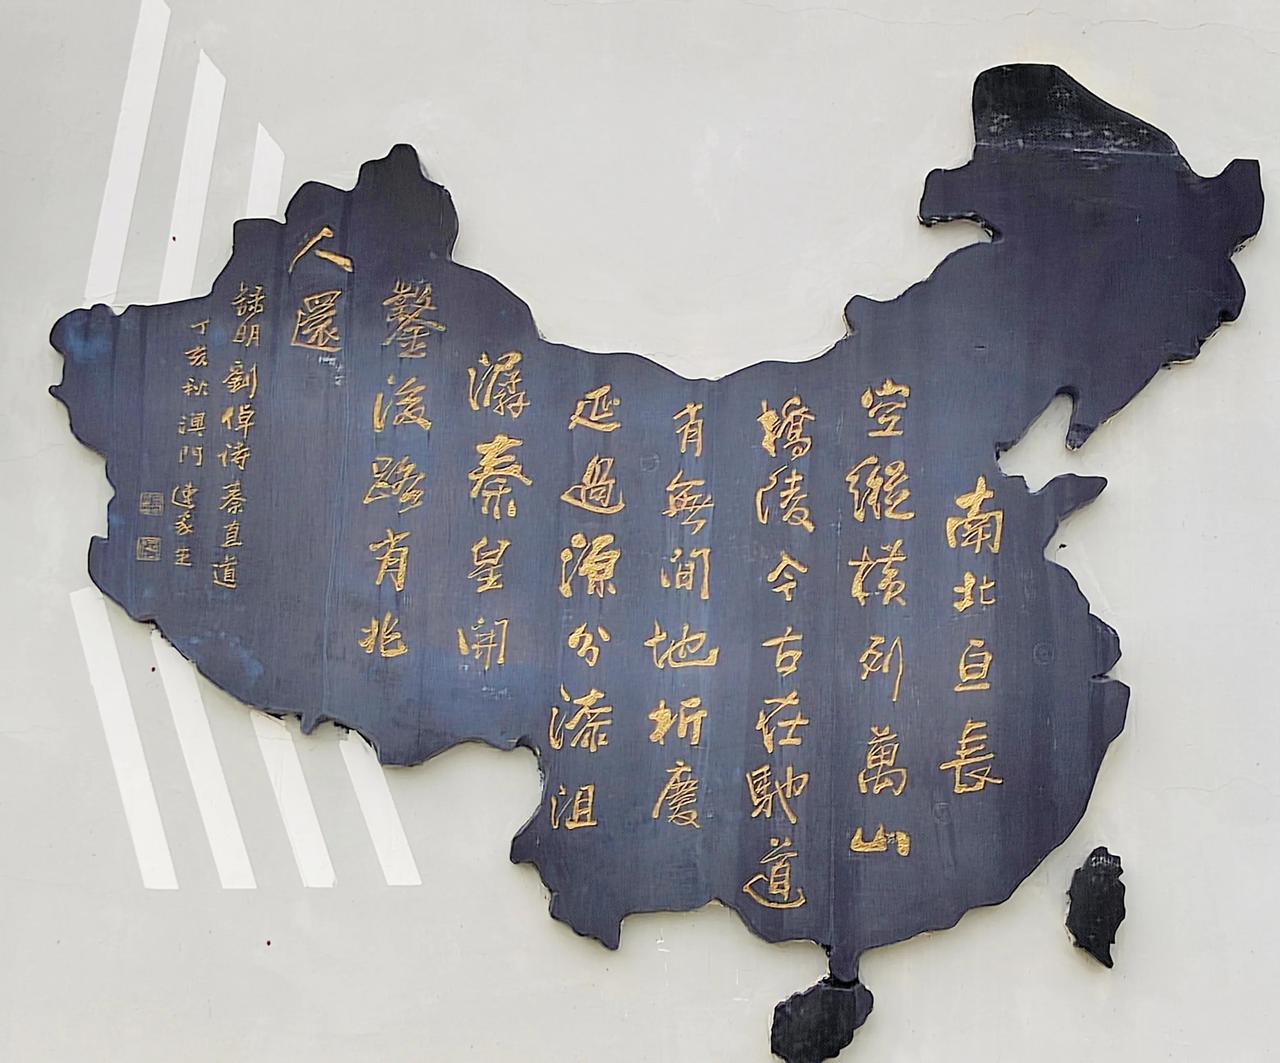 南北亘長
空縱橫列萬山
橋陵今古在馳道
有無間地析慶
延過源分漆沮
潺秦皇開
鑿後路有兆
人還
錄明劉倬詩秦直道
丁亥秋澳門連家生